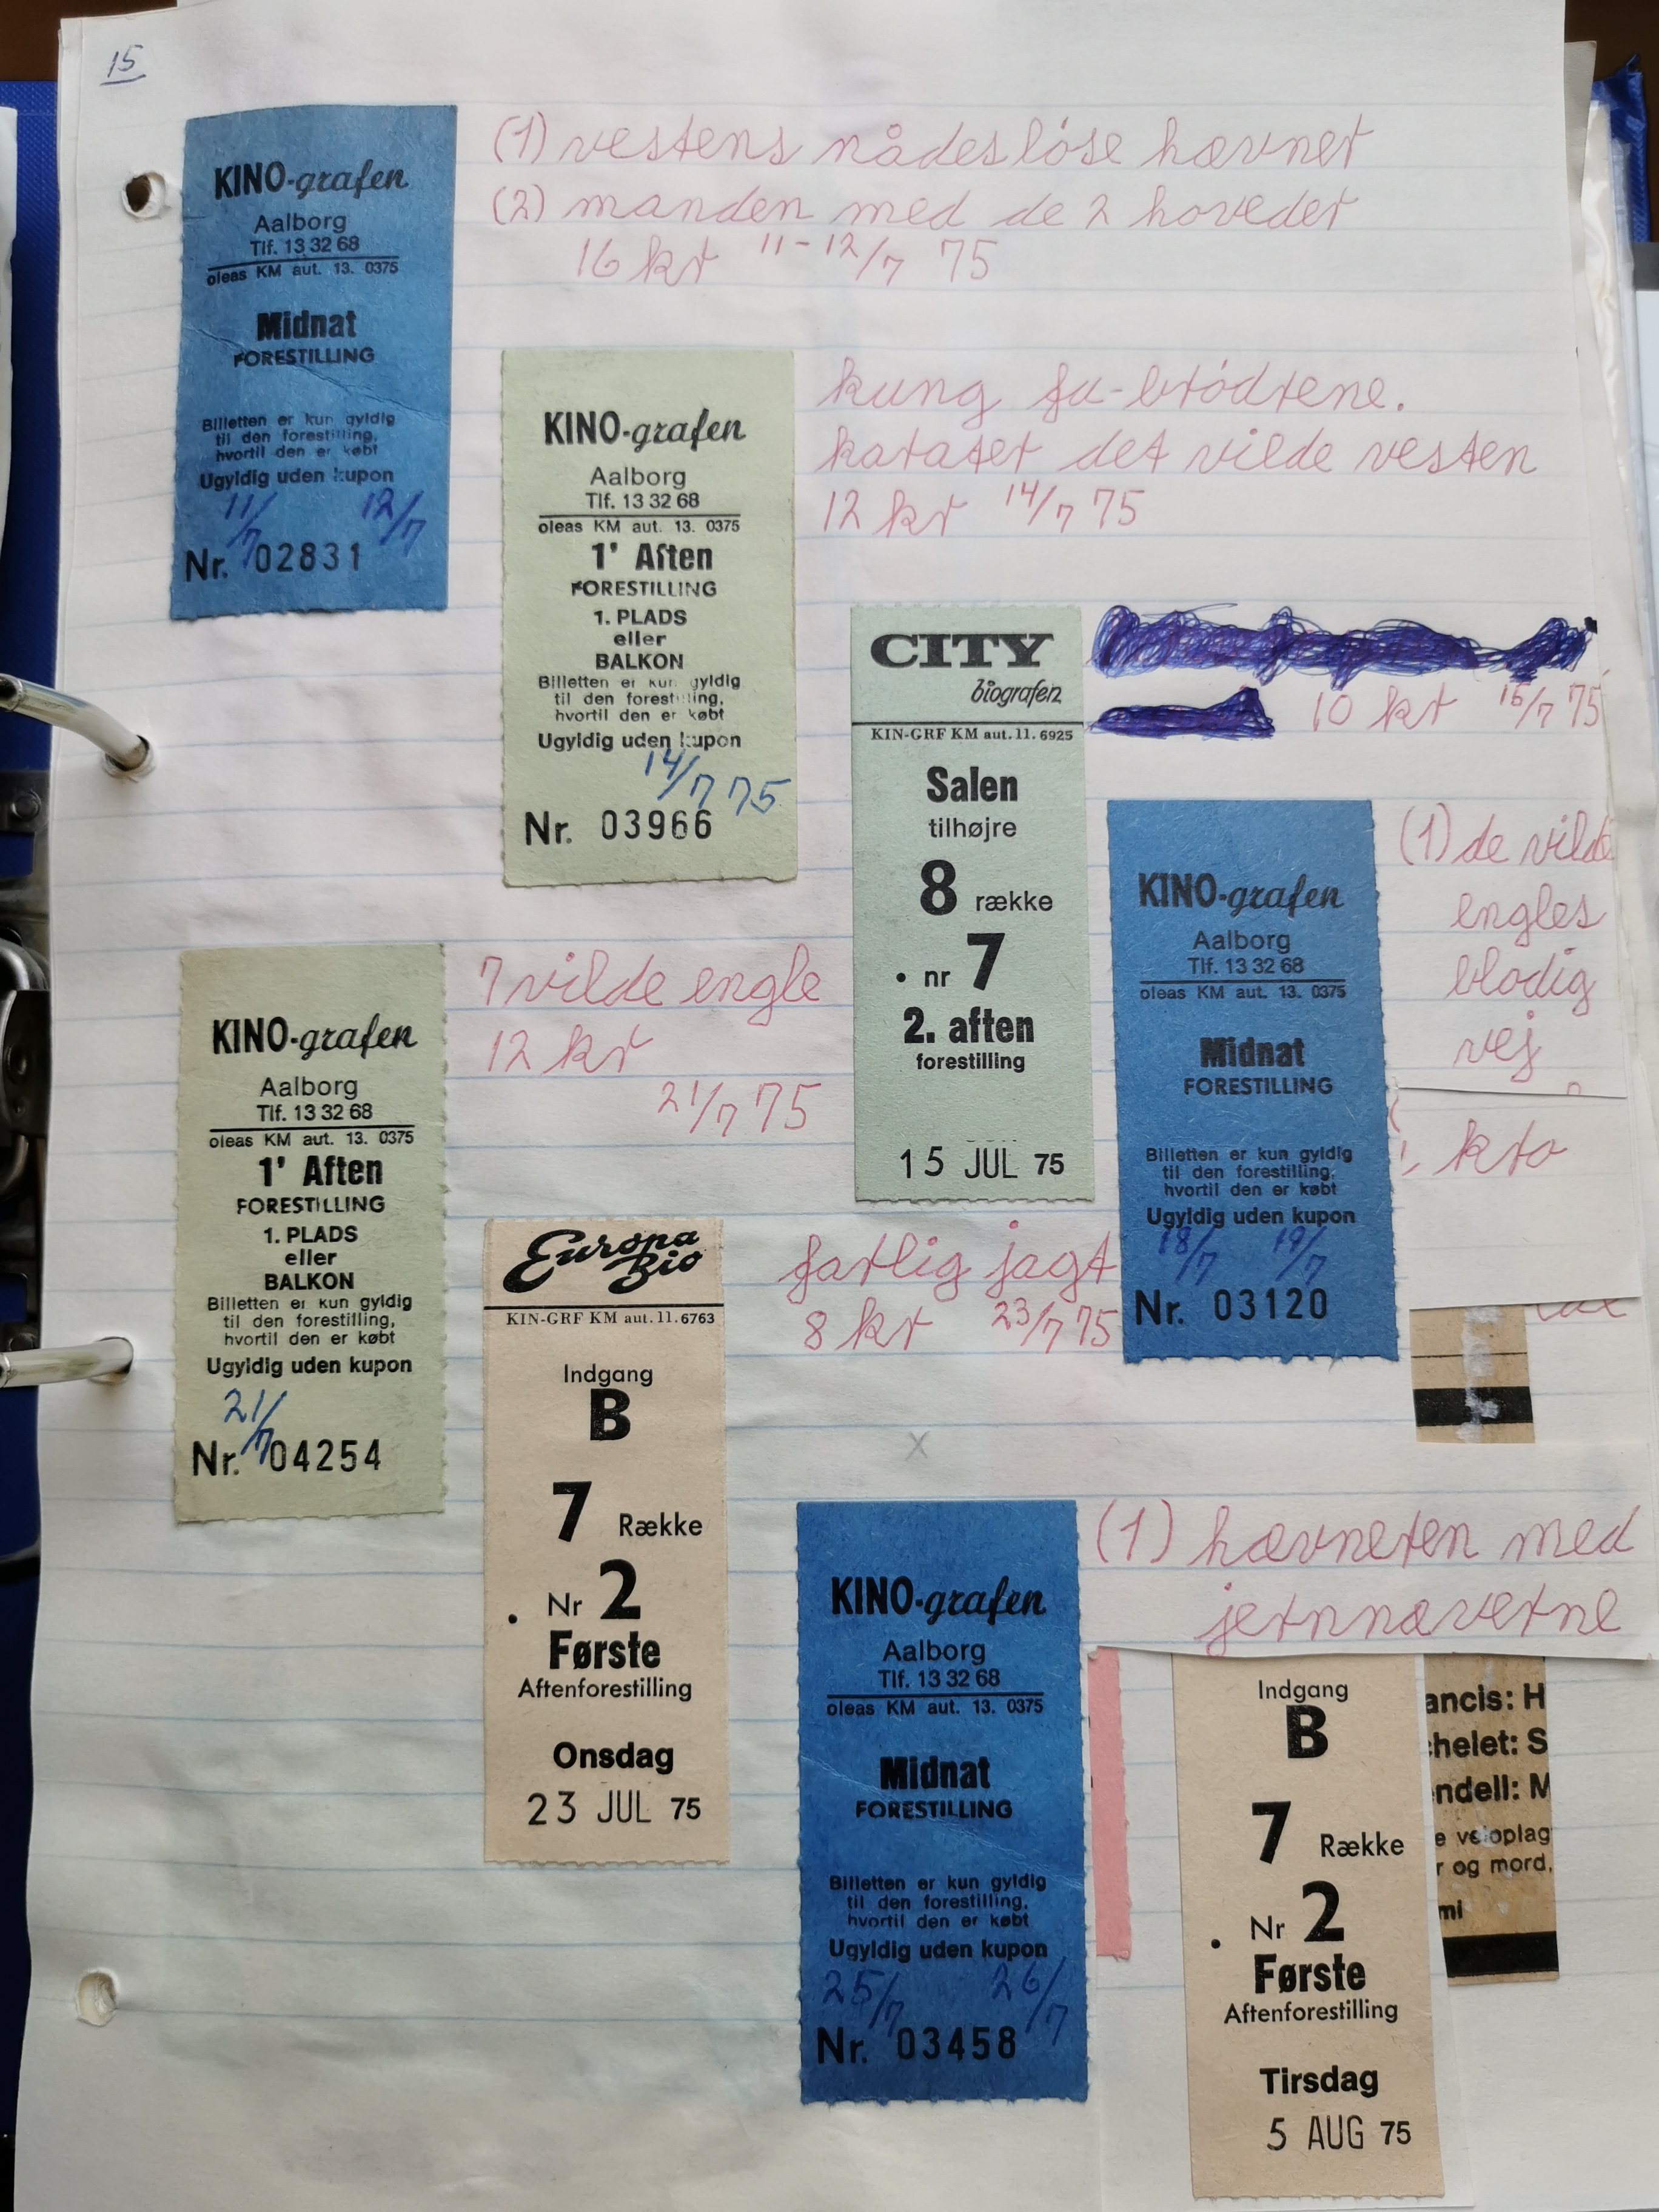 15
KINO-grafen
Aalborg
Tlf. 13 32 68
oleas KM aut. 13. 0375
Midnat
FORESTILLING
Billetten er kun gyldig
til den forestilling,
hvortil den er købt
Ugyldig uden kupon
11/7 12/7
Nr. 02831
(1) vestens nådesløse hævner
(2) manden med de 2 hoveder
16 kr 11-12/7 75
KINO-grafen
Aalborg
Tlf. 13 32 68
oleas KM aut. 13. 0375
1' Aften
FORESTILLING
1. PLADS
eller
BALKON
Billetten er kun gyldig
til den forestilling,
hvortil den er købt
Ugyldig uden kupon
14/7 75
Nr. 03966
kung fu-brødrene.
karater det vilde vesten
12 kr 14/7 75
CITY
biografen
KIN-GRF KM aut. 11. 6925
Salen
tilhøjre
8 række
nr 7
2. aften
forestilling
15 JUL 75
10 kr 15/7 75
KINO-grafen
Aalborg
Tlf. 13 32 68
oleas KM aut. 13. 0375
Midnat
FORESTILLING
Billetten er kun gyldig
til den forestilling,
hvortil den er købt
Ugyldig uden kupon
18/7 19/7
Nr. 03120
(1) de vilde
engles
blodig
vej
KINO-grafen
Aalborg
Tlf. 13 32 68
oleas KM aut. 13. 0375
1' Aften
FORESTILLING
1. PLADS
eller
BALKON
Billetten er kun gyldig
til den forestilling,
hvortil den er købt
Ugyldig uden kupon
21/7
Nr. 04254
7 vilde engle
12 kr
21/7 75
Europa
Bio
KIN-GRF KM aut. 11. 6763
Indgang
B
7 Række
Nr 2
Første
Aftenforestilling
Onsdag
23 JUL 75
farlig jagt
8 kr 23/7 75
x
KINO-grafen
Aalborg
Tlf. 13 32 68
oleas KM aut. 13. 0375
Midnat
FORESTILLING
Billetten er kun gyldig
til den forestilling,
hvortil den er købt
Ugyldig uden kupon
25/7 26/7
Nr. 03458
(1) hævneren med
jernnæverne
Indgang
B
7 Række
Nr 2
Første
Aftenforestilling
Tirsdag
5 AUG 75
ancis: H
helet: S
ndell: M
og mord.